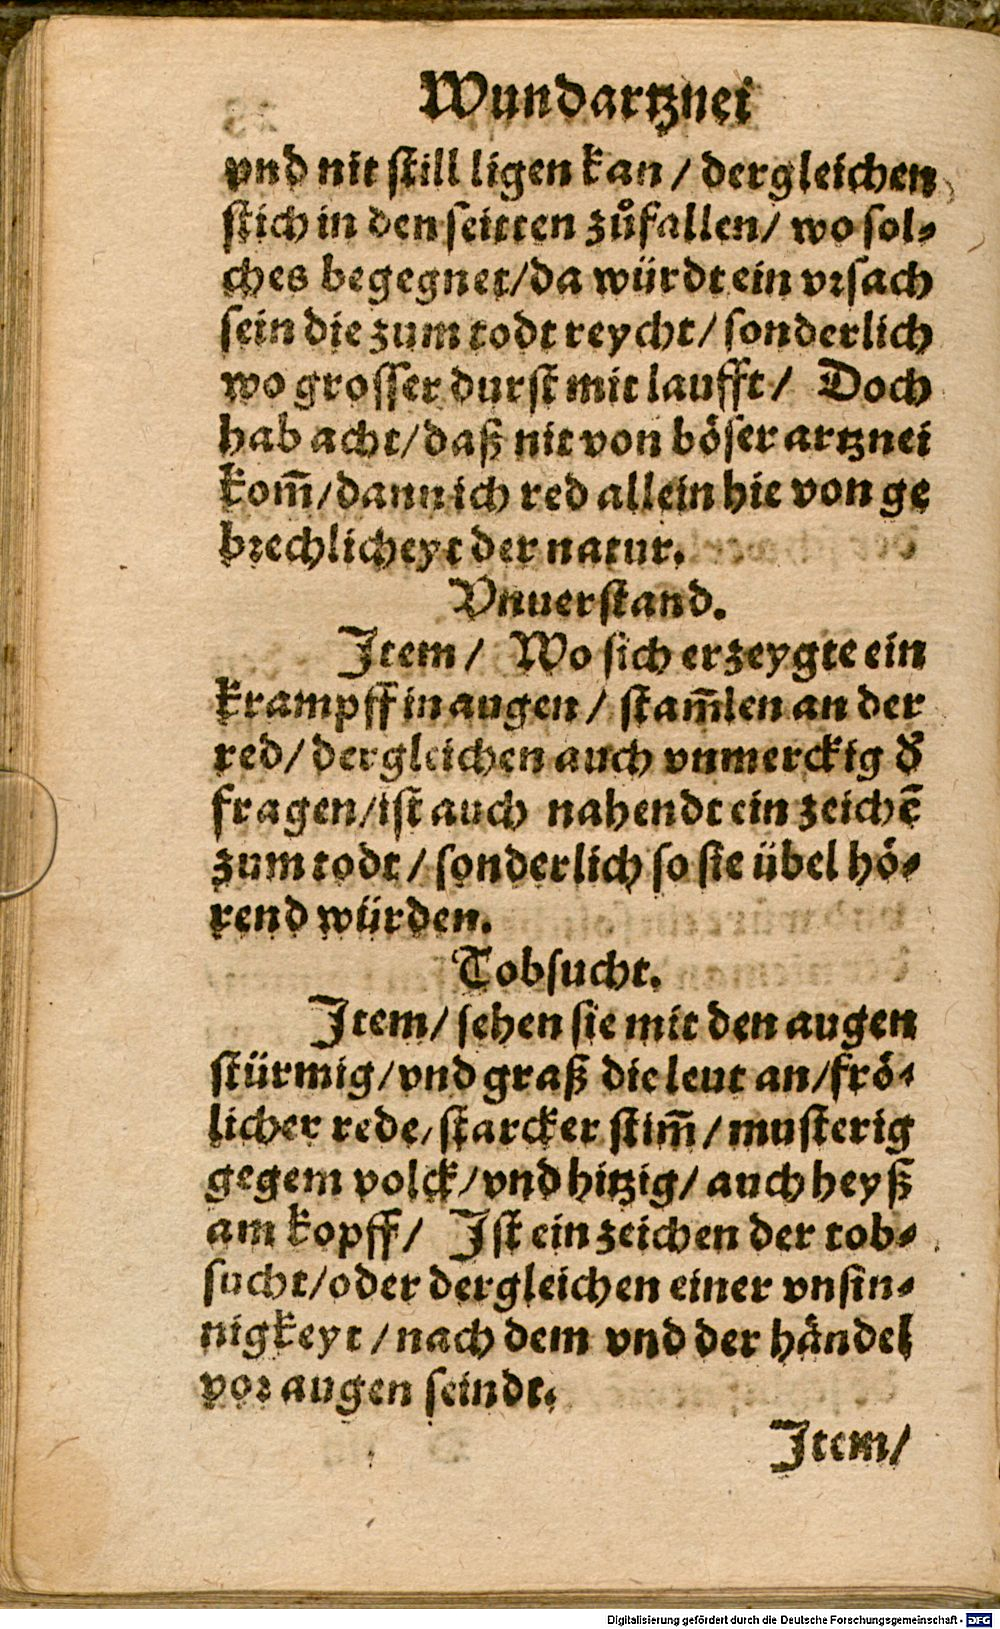 Wundartznei
vnd nit still ligen kan / dergleichen
stich in den seitten zůfallen / wo sol⸗
ches begegnet / da würdt ein vrsach
sein die zum todt reycht / sonderlich
wo grosser durst mit laufft / Doch
hab acht / daß nit von böser artznei
kom̃ / dann ich red allein hie von ge
brechlicheyt der natur.
Vnuerstand.
Item / Wo sich erzeygte ein
krampff in augen / stam̃len an der
red / dergleichen auch vnmerckig d̓
fragen / ist auch nahendt ein zeichẽ
zum todt / sonderlich so sie übel hö⸗
rend würden.
Tobsucht.
Item / sehen sie mit den augen
stürmig / vnd graß die leut an / frö⸗
licher rede, starcker stim̃ / musterig
gegem volck / vnd hitzig / auch heyß
am kopff / Ist ein zeichen der tob⸗
sucht / oder dergleichen einer vnsin⸗
nigkeyt / nach dem vnd der händel
vor augen seindt.
Item /
Digitalisierung gefördert durch die Deutsche Forschungsgemeinschaft - DFG